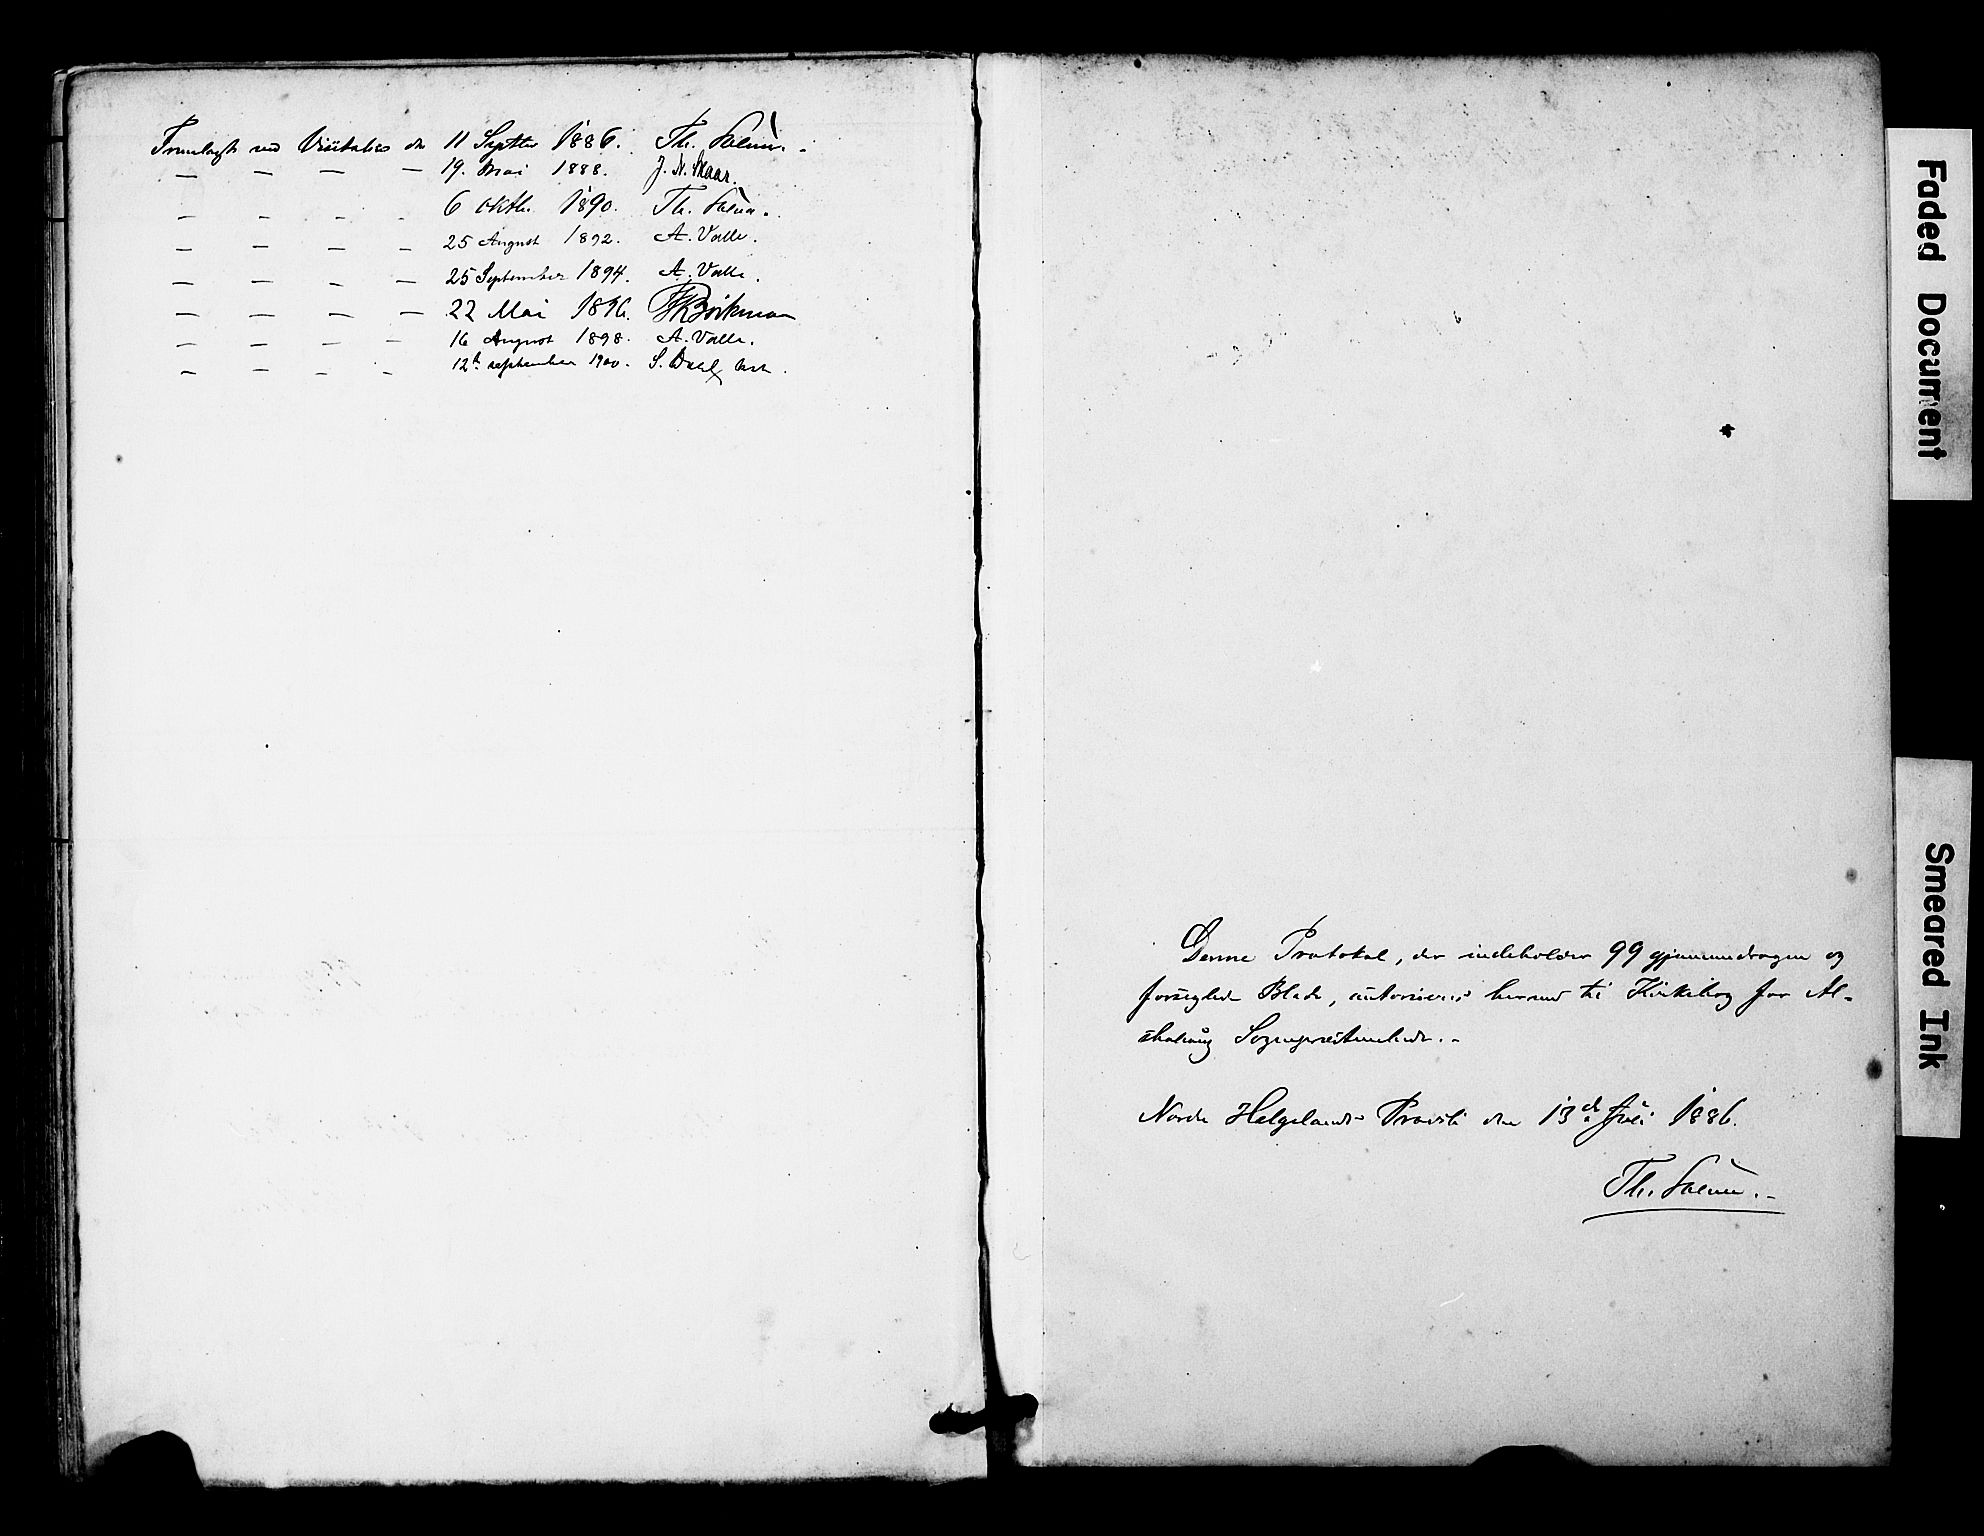 Fremlagt ved Visitatis den 11 Septbr 1886. Th. Solem.-
— — — — 19. Mai 1888. J. N. Skaar.
— — — — 6 Oktbr. 1890. Th. Solem.
— — — — 25 August 1892. A. Valle.
— — — — 25 September 1894. A. Valle.
— — — — 22 Mai 1896. Bøckman
— — — — 16 August 1898. A. Valle.
— — — — 12te september 1900. S. Dahl
Denne Protokol, der indeholder 99 gjennemdragne og
forseglede Blade, autoriseres herved til Kirkebog for Al-
stahaug Sogneprestembede.-
Nordre Helgelands Provsti den 13de Juli 1886.
Th. Solem.-
Faded Document
Smeared Ink